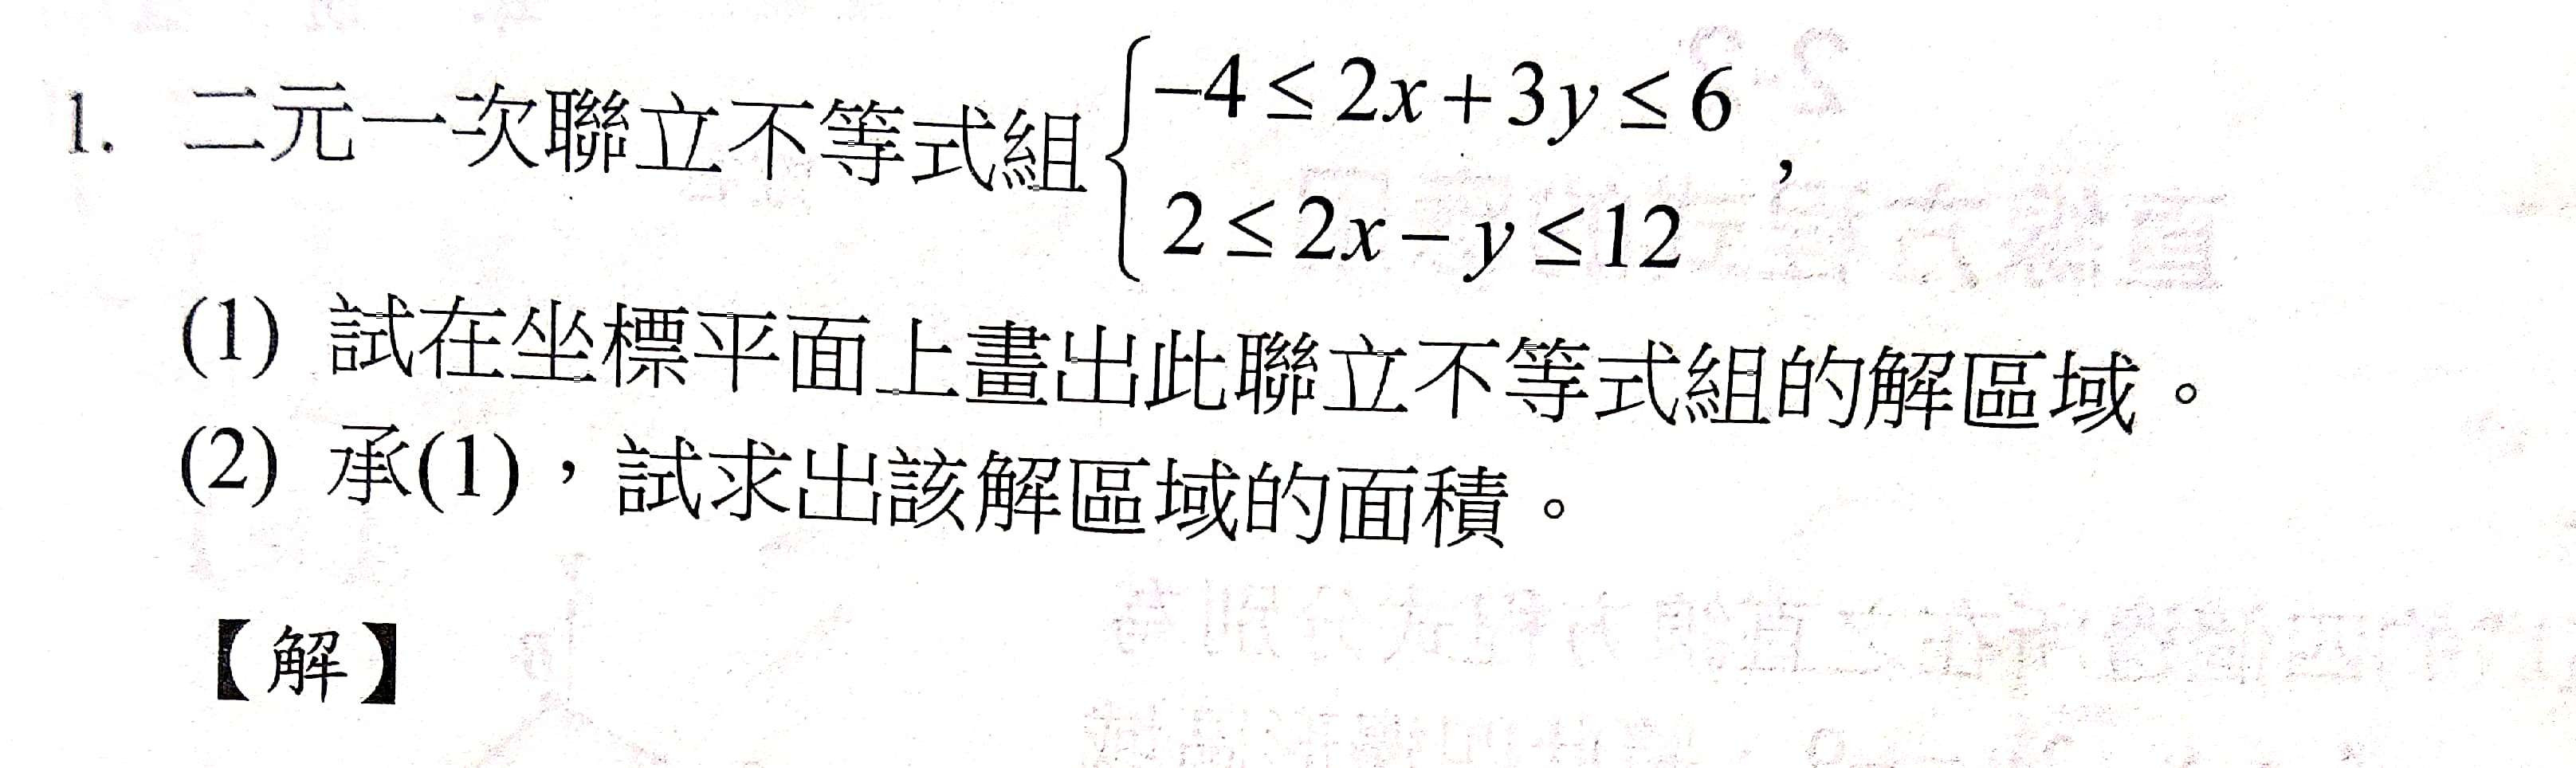 1. 二元一次聯立不等式組 { −4 ≤ 2x + 3y ≤ 6
2 ≤ 2x − y ≤ 12 ,
(1) 試在坐標平面上畫出此聯立不等式組的解區域。
(2) 承(1)，試求出該解區域的面積。
【解】